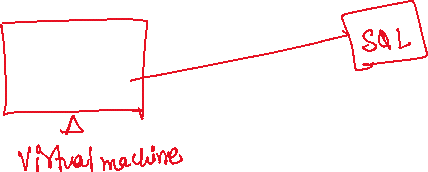 SQL
Virtual machine